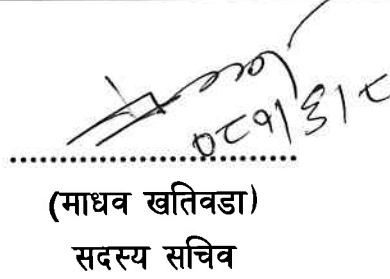 ०८१/६/८
(माधव खतिवडा)
सदस्य सचिव